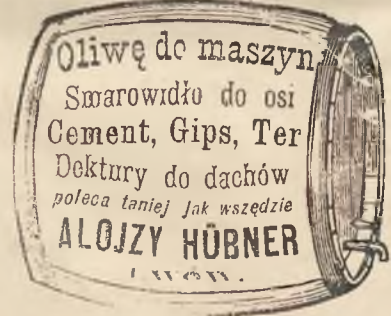 Oliwę do maszyn
Smarowidło do osi
Cement, Gips, Ter
Dektury do dachów
poleca taniej jak wszędzie
ALOJZY HÜBNER